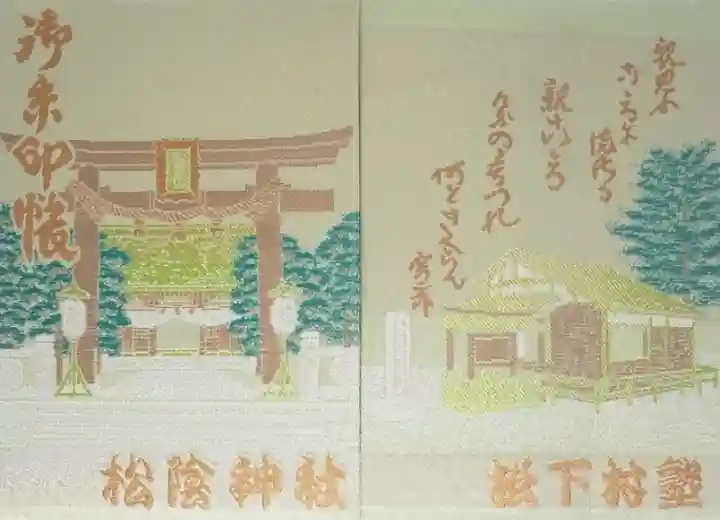 御朱印帳
松陰神社
親思ふ
こゝろに
まさる
親ごゝろ
けふの音つれ
何ときくらん
松下村塾